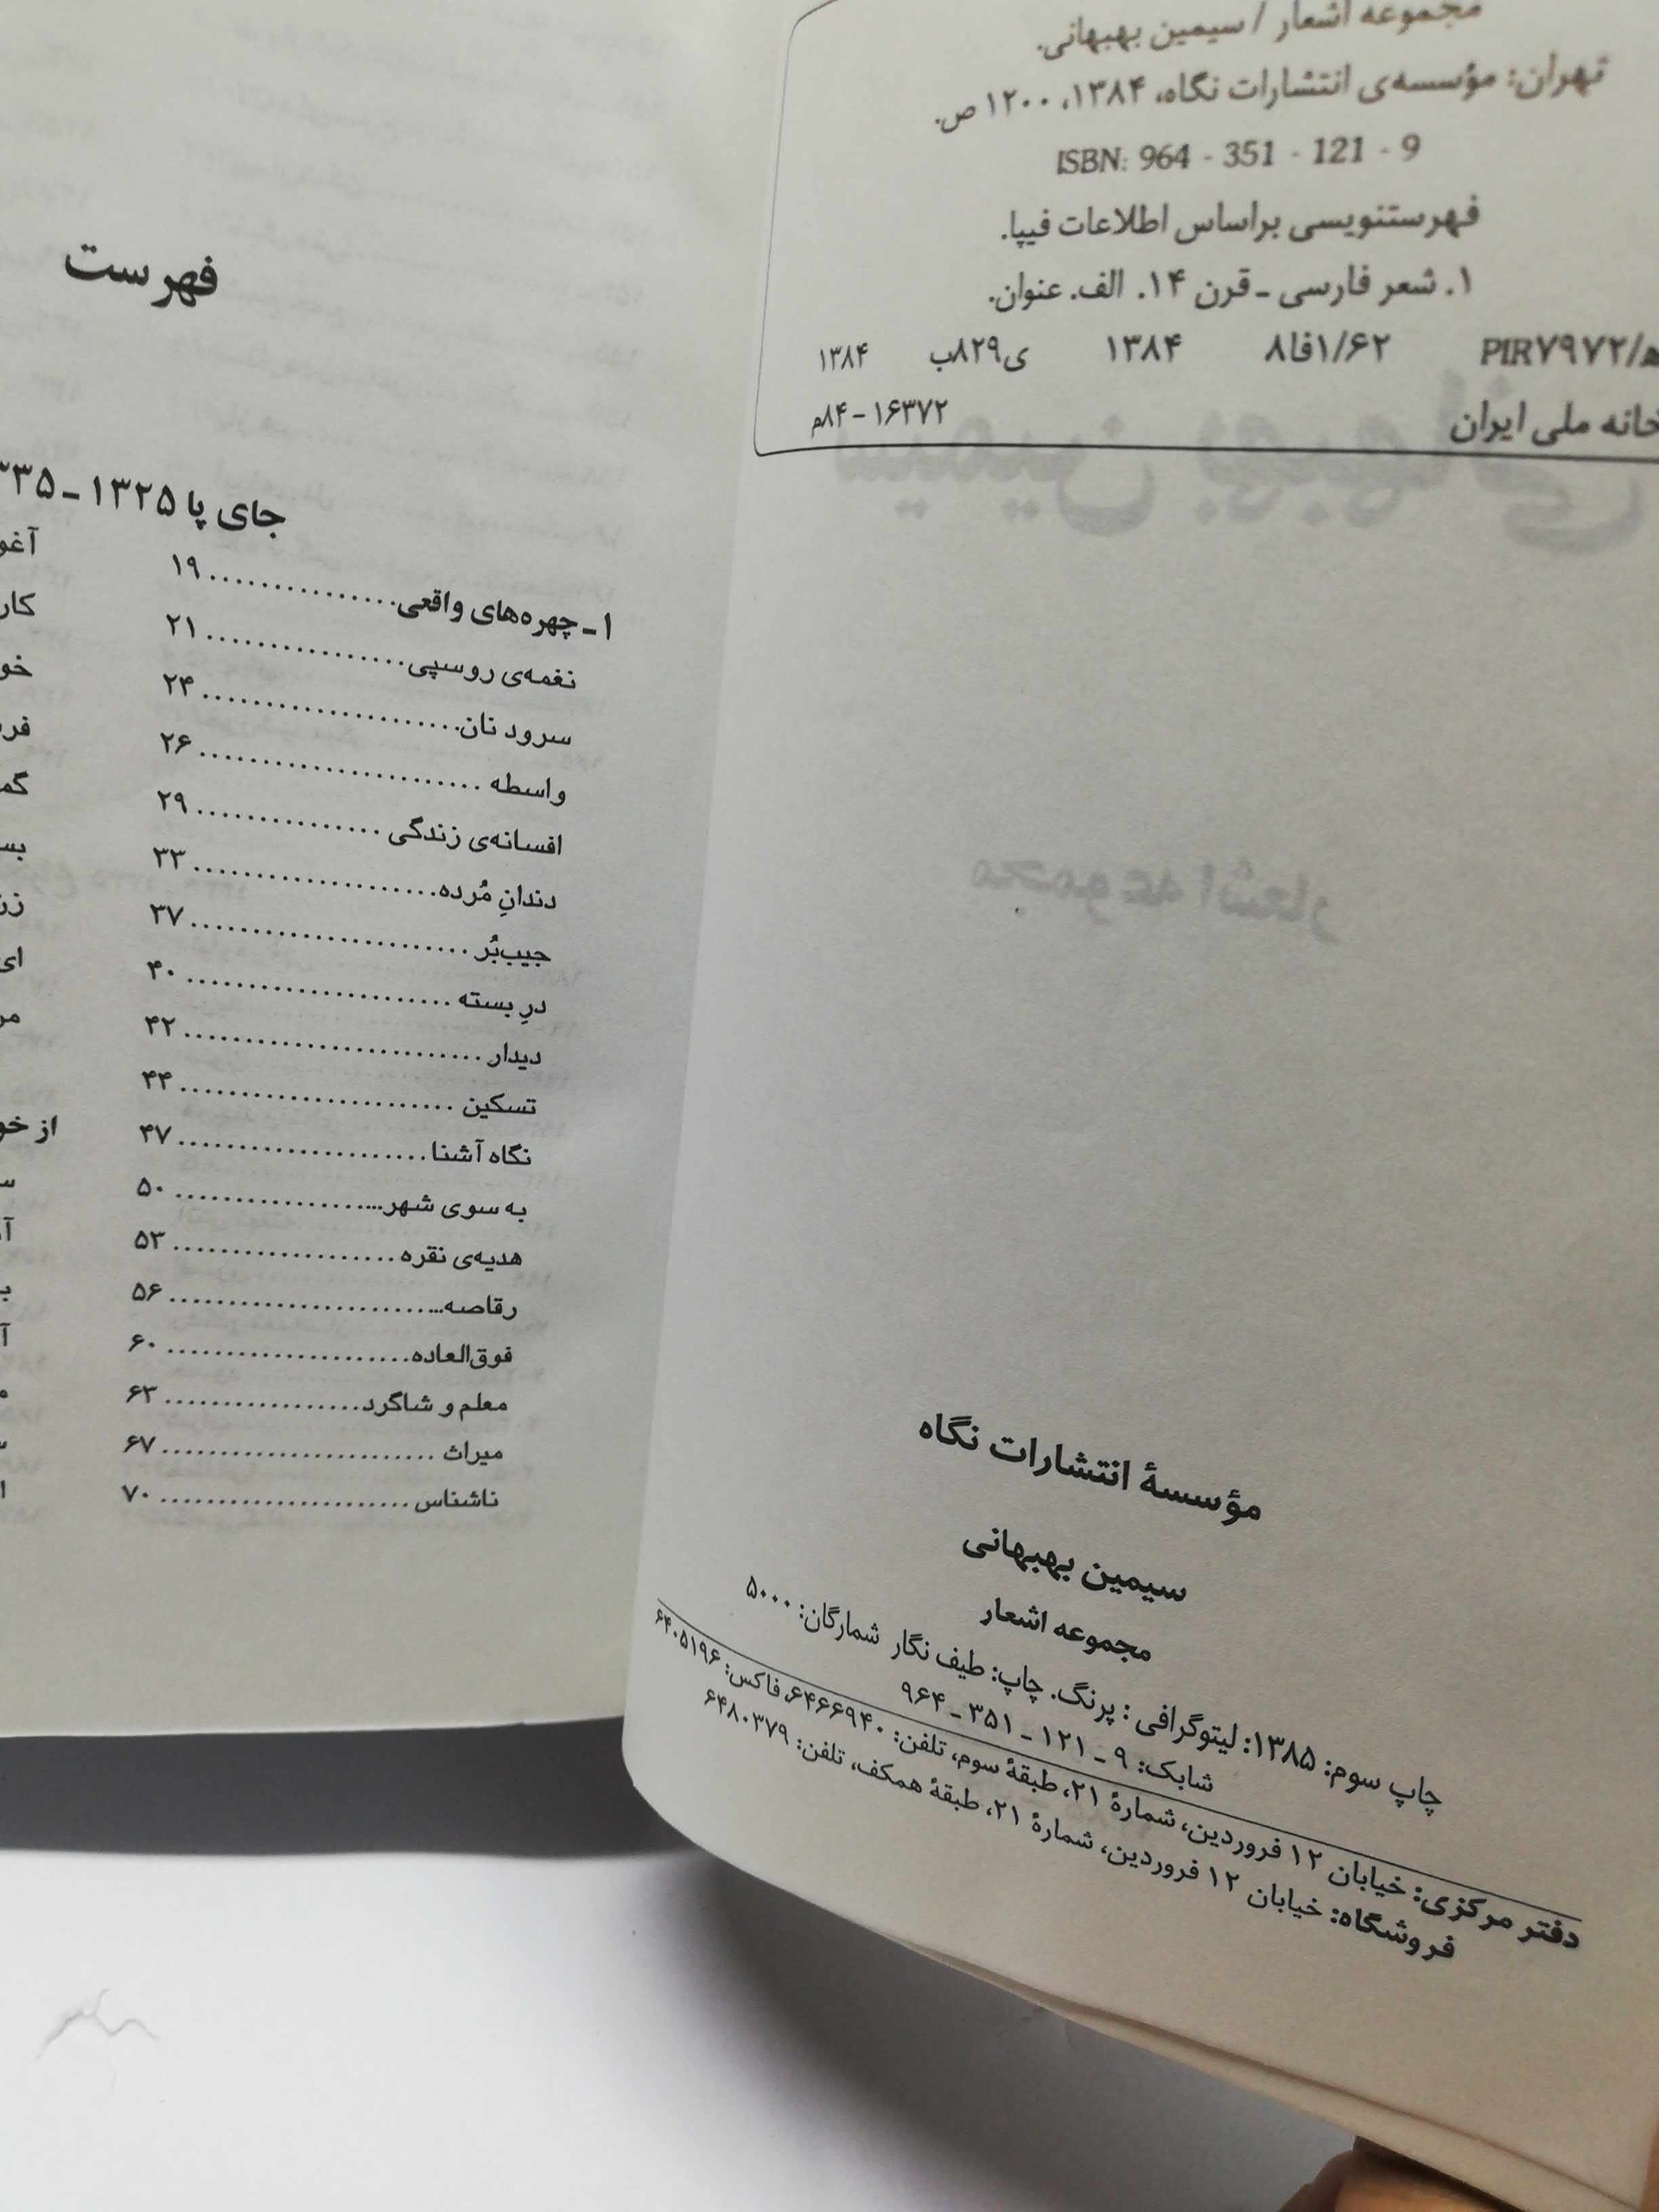 مجموعه اشعار / سیمین بهبهانی.
تهران: مؤسسه‌ی انتشارات نگاه، ۱۳۸۴، ۱۲۰۰ ص.
ISBN: 964 - 351 - 121 - 9
فهرستنویسی براساس اطلاعات فیپا.
۱. شعر فارسی ـ قرن ۱۴. الف. عنوان.
PIR۷۹۷۲/ه ۸فا۱/۶۲ ۱۳۸۴ ی۸۲۹ب ۱۳۸۴
خانه ملی ایران ۱۶۳۷۲ - ۸۴م
مؤسسهٔ انتشارات نگاه
سیمین بهبهانی
مجموعه اشعار
چاپ سوم: ۱۳۸۵: لیتوگرافی : پرنگ. چاپ: طیف نگار شمارگان: ۵۰۰۰
شابک: ۹ ـ ۱۲۱ ـ ۳۵۱ ـ ۹۶۴
دفتر مرکزی: خیابان ۱۲ فروردین، شمارهٔ ۲۱، طبقهٔ سوم، تلفن: ۶۴۶۶۹۴۰، فاکس: ۶۴۰۵۱۹۶
فروشگاه: خیابان ۱۲ فروردین، شمارهٔ ۲۱، طبقهٔ همکف، تلفن: ۶۴۸۰۳۷۹
فهرست
جای پا ۱۳۲۵ ـ ۳۳۵
۱ ـ چهره‌های واقعی ............... ۱۹
نغمه‌ی روسپی ................ ۲۱
سرود نان .................... ۲۴
واسطه ...................... ۲۶
افسانه‌ی زندگی ............... ۲۹
دندانِ مُرده ................... ۳۳
جیب‌بُر ...................... ۳۷
درِ بسته ..................... ۴۰
دیدار ........................ ۴۲
تسکین ...................... ۴۴
نگاه آشنا .................... ۴۷
به سوی شهر... ............... ۵۰
هدیه‌ی نقره .................. ۵۳
رقاصه... ..................... ۵۶
فوق‌العاده .................... ۶۰
معلم و شاگرد ................ ۶۳
میراث ...................... ۶۷
ناشناس ..................... ۷۰